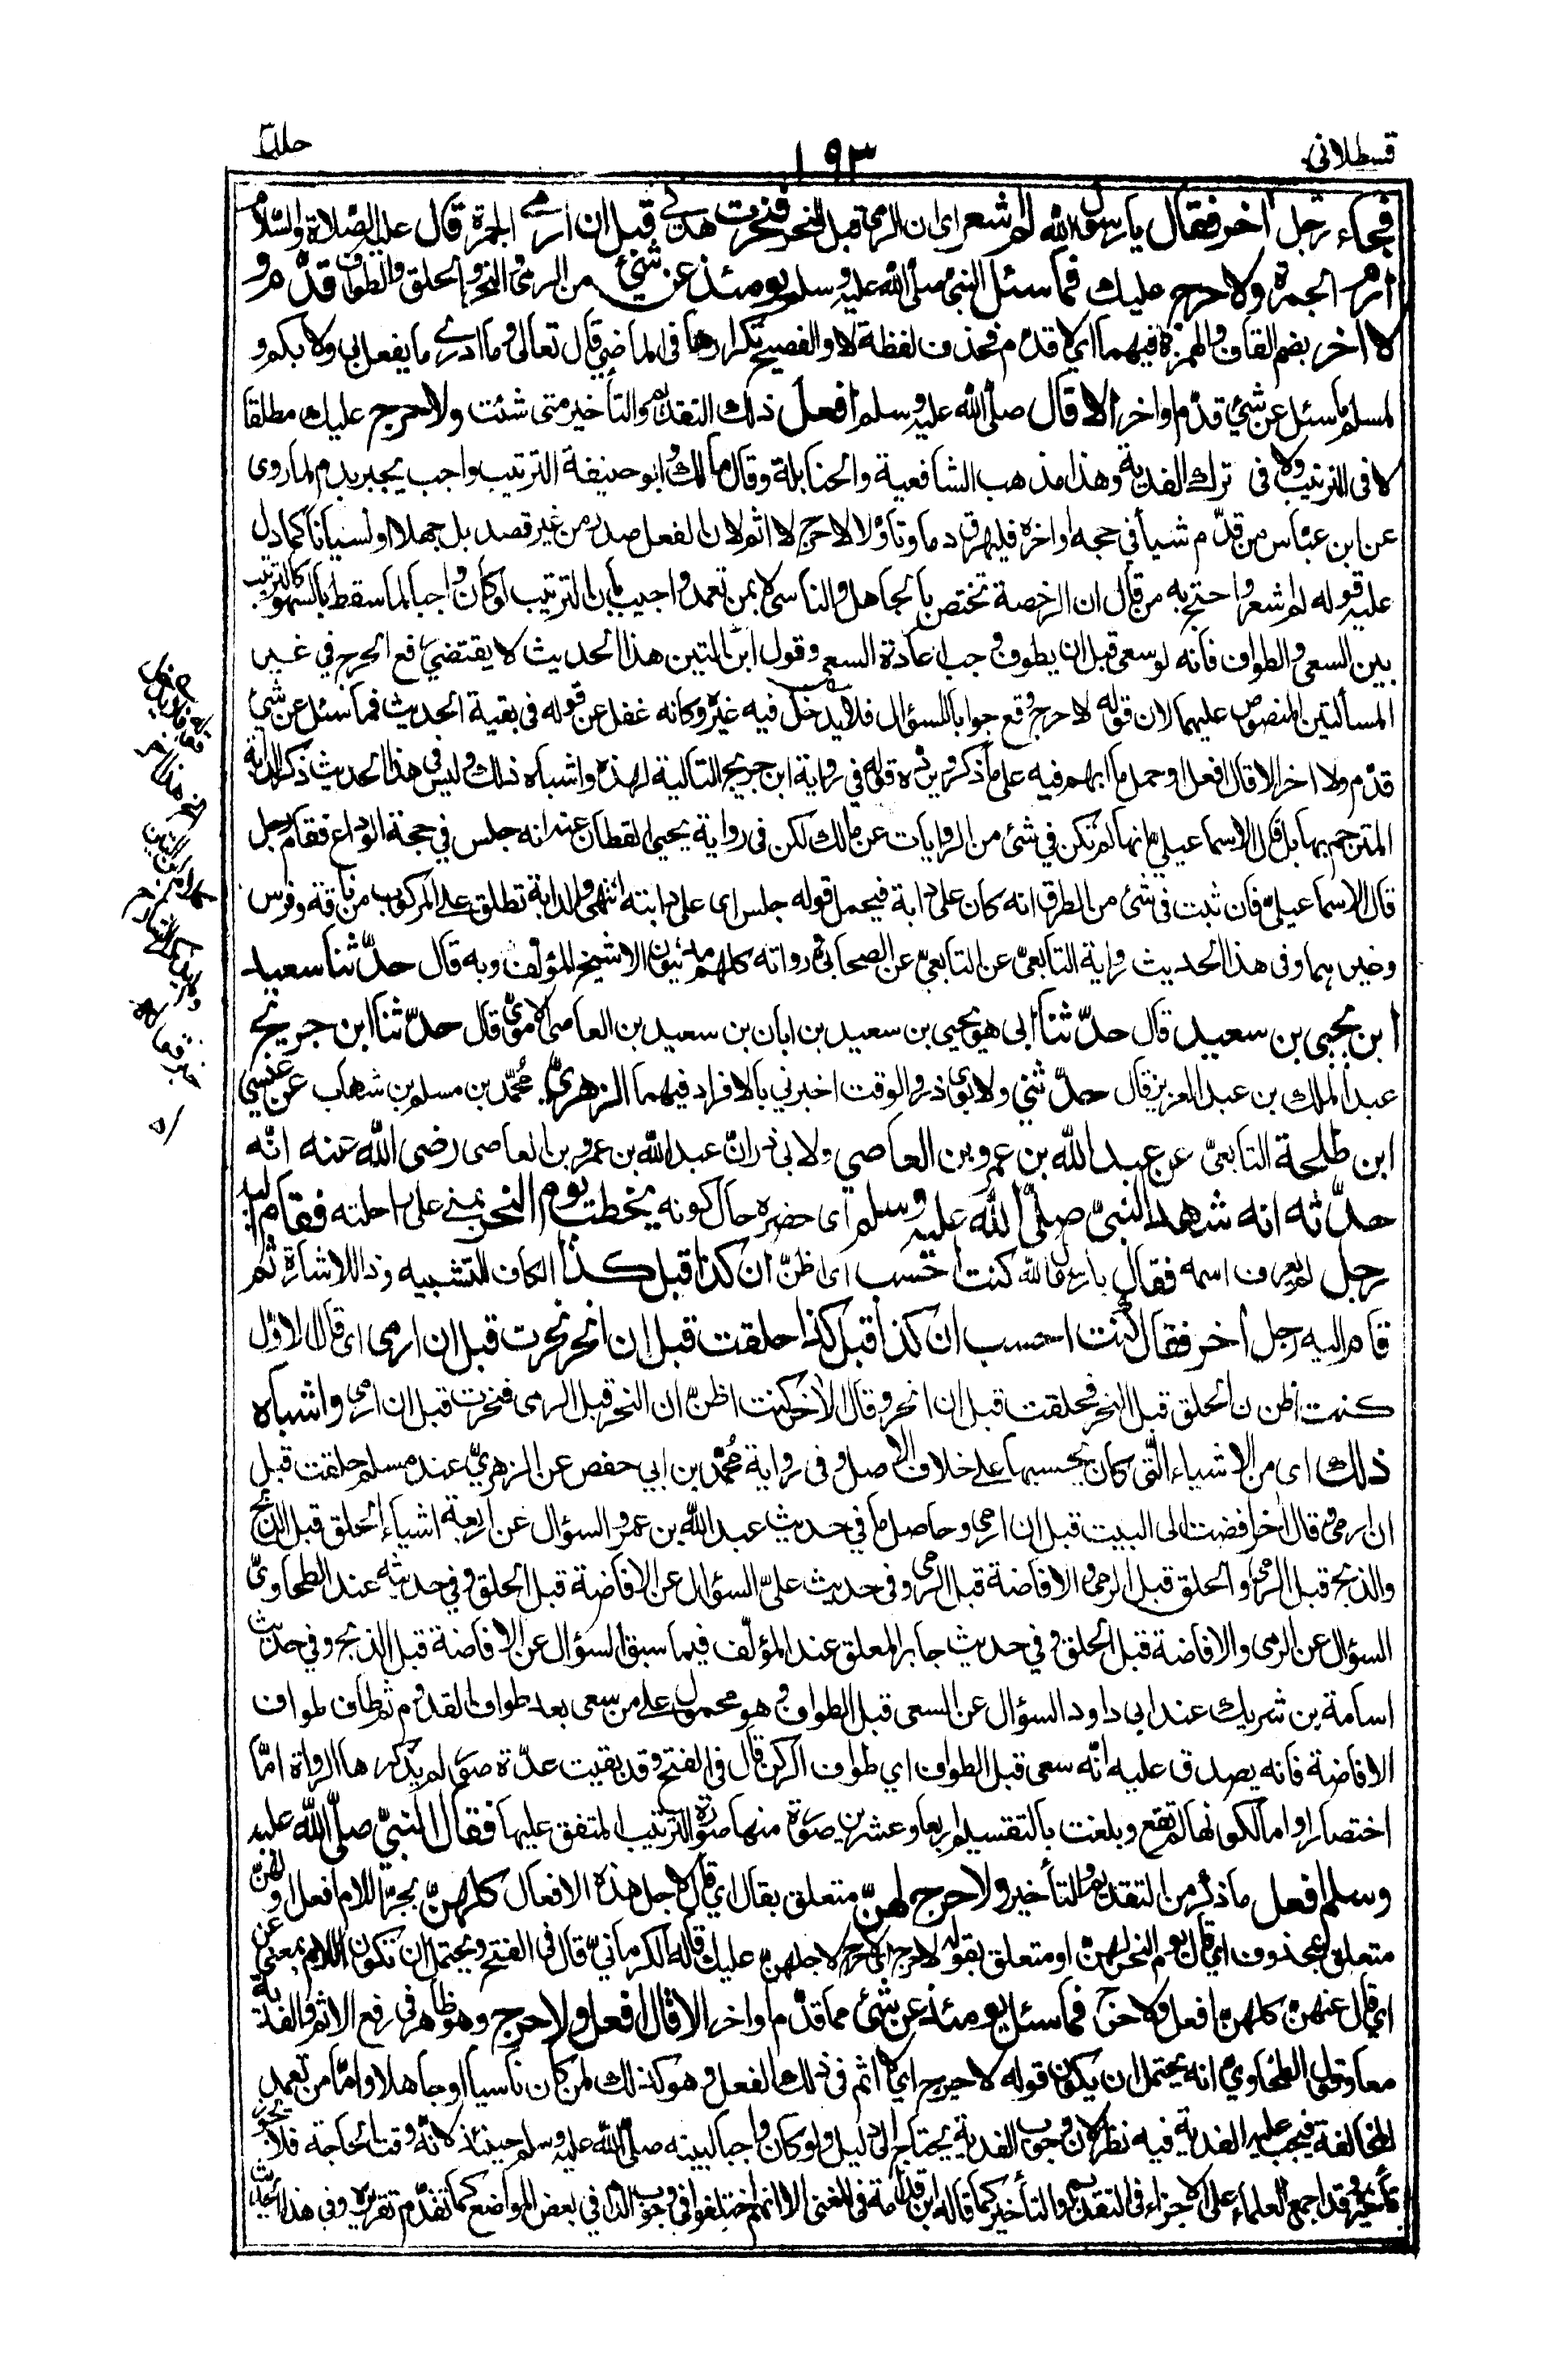 قسطلاني
١٩٣
جلد
فجاء رجل آخر فقال يا رسول الله لم اشعر اى ان الرمى قبل النحر فنحرت هديى قبل ان ارمي الجمرة قال عليه الصلاة والسلام
ارم الجمرة ولا حرج عليك فما سئل النبي صلى الله عليه وسلم يومئذ عن شئ من الرمى والنحر والحلق والطواف قدم و
لا اخر بضم القاف والهمزة فيهما اي لا قدم فحذف لفظة لا والفصيح تكرارها في الماضي قال تعالى وما ادري ما يفعل بي ولا بكم و
لمسلم ما سئل عن شئ قدم او اخر الا قال صلى الله عليه وسلم افعل ذلك التقديم والتأخير متى شئت ولا حرج عليك مطلقا
لا فى الترتيب ولا فى ترك الفدية وهذا مذهب الشافعية والحنابلة وقال مالك وابو حنيفة الترتيب واجب يجبر بدم لما روى
عن ابن عباس من قدم شيأ في حجه او اخره فليهرق دما وتأولا لا حرج لا اثم لان الفعل صدر من غير قصد بل جهلا او نسيانا كما دل
عليه قوله لم اشعر واحتج به من قال ان الرخصة تختص بالجاهل والناسى لا بمن تعمد واجيب بان الترتيب لو كان واجبا لما سقط بالسهو كالترتيب
بين السعى والطواف فانه لو سعى قبل ان يطوف وجب اعادة السعى وقول ابن التين هذا الحديث لا يقتضي رفع الحرج في غير
المسألتين المنصوص عليهما لان قوله لا حرج وقع جوابا للسؤال فلا يدخل فيه غيره وكانه غفل عن قوله فى بقية الحديث فما سئل عن شئ
قدم ولا اخر الا قال افعل او حمل ما ابهم فيه على ما ذكر ويرده قوله في رواية ابن جريج التالية لهذه واشباه ذلك وليس في هذا الحديث ذكر الدابة
المترجم بها بل قال الاسماعيلي انها لم تكن في شئ من الروايات عن مالك لكن فى رواية يحيى القطان عنه انه جلس في حجة الوداع فقام رجل
قال الاسماعيلي فان ثبت في شئ من الطرق انه كان على دابة فيحمل قوله جلس اى على دابته انتهى والدابة تطلق على المركوب من ناقة وفرس
وغيرهما وفى هذا الحديث رواية التابعي عن التابعي عن الصحابي ورواته كلهم مدنيون الا شيخ المؤلف وبه قال حدثنا سعيد
ابن يحيى بن سعيد قال حدثنا ابى هو يحيى بن سعيد بن ابان بن سعيد بن العاصى الاموي قال حدثنا ابن جريج
عبد الملك بن عبد العزيز قال حدثني ولابوي ذر والوقت اخبرني بالافراد فيهما الزهري محمد بن مسلم بن شهاب عن عيسى
ابن طلحة التابعي عن عبد الله بن عمرو بن العاصي ولابي ذر ان عبد الله بن عمرو بن العاصى رضى الله عنه انه
حدثه انه شهد النبي صلى الله عليه وسلم اى حضره حال كونه يخطب يوم النحر بمنى على راحلته فقام اليه
رجل لم يعرف اسمه فقال يا رسول الله كنت احسب اى اظن ان كذا قبل كذا الكاف للتشبيه وذا للاشارة ثم
قام اليه رجل آخر فقال كنت احسب ان كذا قبل كذا حلقت قبل ان انحر نحرت قبل ان ارمى اى قال الاول
كنت اظن ان الحلق قبل النحر فحلقت قبل ان انحر وقال الآخر كنت اظن ان النحر قبل الرمى فنحرت قبل ان ارمى واشباه
ذلك اى من الاشياء التى كان يحسبها على خلاف الاصل وفى رواية محمد بن ابي حفص عن الزهري عند مسلم حلقت قبل
ان ارمى وقال آخر افضت الى البيت قبل ان ارمى وحاصل ما في حديث عبد الله بن عمرو السؤال عن اربعة اشياء الحلق قبل الذبح
والذبح قبل الرمى والحلق قبل الرمى والافاضة قبل الرمى وفى حديث على السؤال عن الافاضة قبل الحلق وفي حديثه عند الطحاوي
السؤال عن الرمى والافاضة قبل الحلق وفي حديث جابر المعلق عند المؤلف فيما سبق السؤال عن الافاضة قبل الذبح وفي حديث
اسامة بن شريك عند ابى داود السؤال عن السعى قبل الطواف وهو محمول على من سعى بعد طواف القدوم ثم طاف طواف
الافاضة فانه يصدق عليه انه سعى قبل الطواف اي طواف الركن قال في الفتح وقد بقيت عدة صور لم يذكرها الرواة اما
اختصارا واما لكونها لم تقع وبلغت بالتقسيم اربعا وعشرين صورة منها صورة الترتيب المتفق عليها فقال النبي صلى الله عليه
وسلم افعل ما ذكر من التقديم والتأخير ولا حرج لهن متعلق بقال اي قال لاجل هذه الافعال كلهن بجر اللام افعل او لهن
متعلق بمحذوف اى قال يوم النحر لهن او متعلق بقوله لا حرج اى لا حرج لاجلهن عليك قاله الكرماني قال في الفتح ويحتمل ان تكون اللام بمعنى عن
اى قال عنهن كلهن افعل ولا حرج فما سئل يومئذ عن شئ مما قدم او اخر الا قال افعل ولا حرج وهو ظاهر في رفع الاثم والفدية
معا وقول الطحاوي انه يحتمل ان يكون قوله لا حرج اي لا اثم فى ذلك الفعل وهو كذلك لمن كان ناسيا او جاهلا واما من تعمد
المخالفة فيجب عليه الفدية فيه نظر لان وجوب الفدية يحتاج الى دليل ولو كان واجبا لبينه صلى الله عليه وسلم حينئذ لانه وقت الحاجة فلا يجوز
تأخيره وقد اجمع العلماء على الاجزاء فى التقديم والتأخير كما قاله ابن قدامة فى المغنى الا انهم اختلفوا في وجوب الدم في بعض المواضع كما تقدم تقريره وفي هذا الحديث